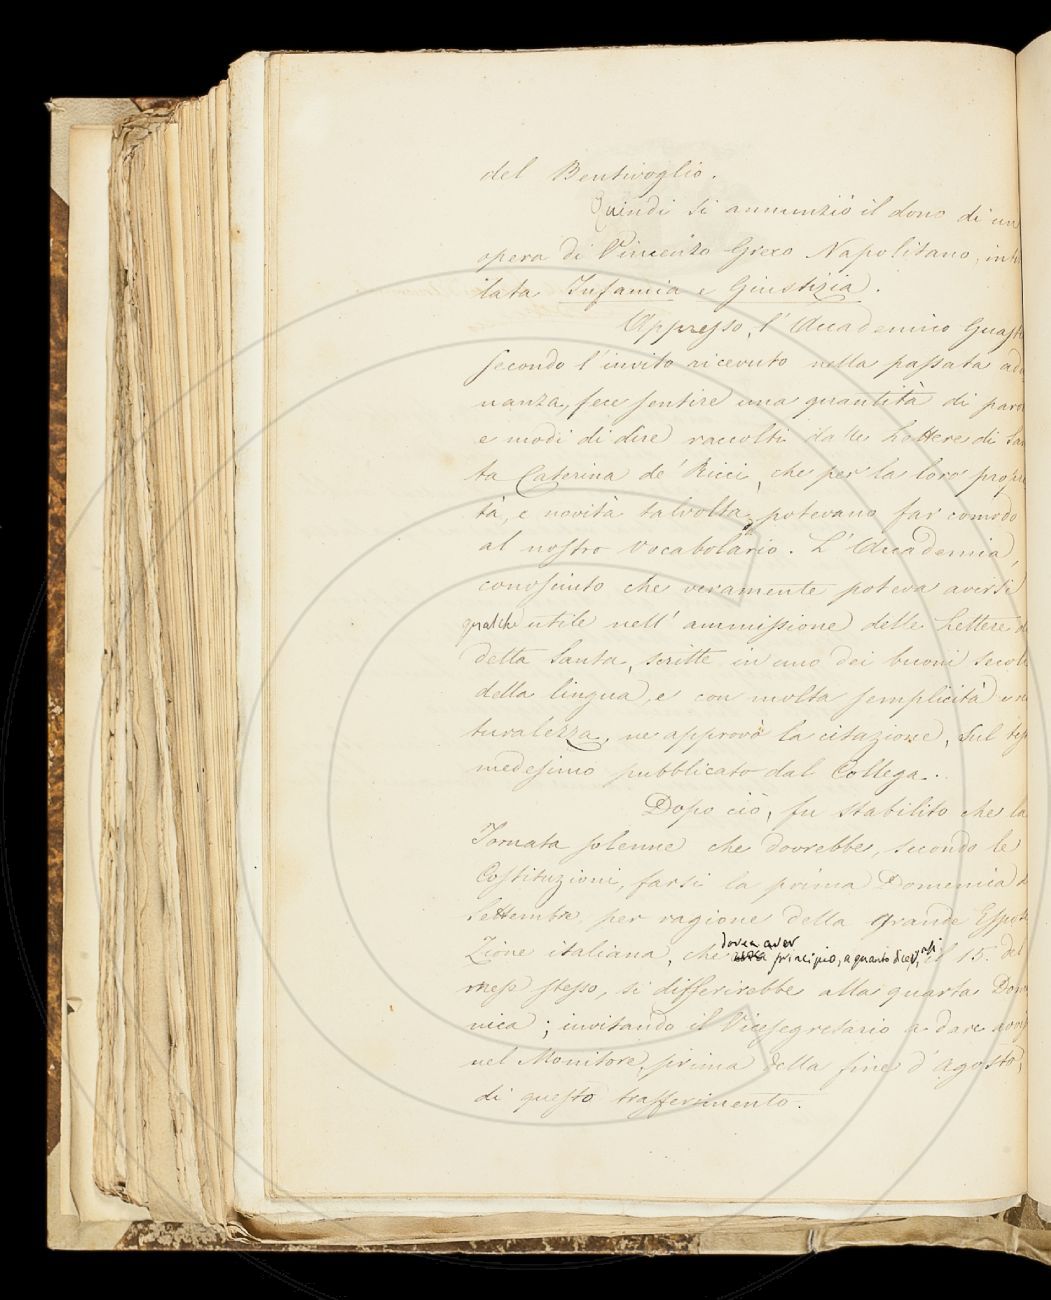 del Bentivoglio.
Quindi si annunziò il dono di un
opera di Vincenzo Greco Napolitano, inti
tata Infamia e Giustizia.
Appresso, l'Accademico Guasti
secondo l'invito ricevuto nella passata adu
nanza, fece sentire una quantità di paro
e modi di dire raccolti dalle Lettere di San
ta Caterina de' Ricci, che per la loro proprie
tà, e novità talvolta, potevano far comodo
al nostro Vocabolario. L'Accademia,
conosciuto che veramente poteva aversi
qualche utile nell'ammissione delle Lettere de
detta Santa, scritte in uno dei buoni secoli
della lingua, e con molta semplicità e na
turalezza, ne approvò la citazione, sul tes
medesimo pubblicato dal Collega.
Dopo ciò, fu stabilito che la
Tornata solenne che dovrebbe, secondo le
Costituzioni, farsi la prima Domenica di
Settembre, per ragione della grande Esposi
zione italiana, che dovea aver principio, a quanto dicevasi, il 15. del
mese stesso, si differirebbe alla quarta Dome
nica; invitando il Vicesegretario a dare avvis
nel Monitore, prima della fine d'Agosto,
di questo trasferimento.